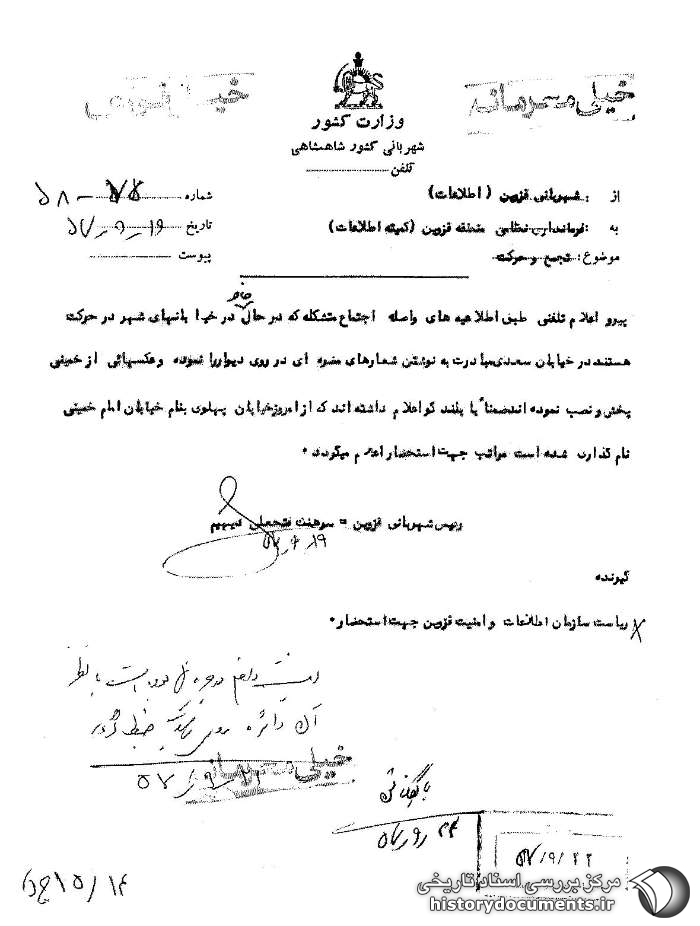 خیلی محرمانه
وزارت کشور
شهربانی کشور شاهنشاهی
تلفن
از : شهربانی قزوین ( اطلاعات )
شماره ۷۵ - ۵۸
به : فرمانداری نظامی منطقه قزوین (کمیته اطلاعات)
تاریخ ۱۹ / ۹ / ۵۷
موضوع : تجمع و حرکت
پیوست
پیرو اعلام تلفنی طبق اطلاعیه های واصله اجتماع متشکله که در حال حاضر در خیابانهای شهر در حرکت
هستند در خیابان سعدی مبادرت به نوشتن شعارهای مضره ای در روی دیوارها نموده و عکسهائی از خمینی
پخش و نصب نموده اند ضمناً با بلند گو اعلام داشته اند که از امروز خیابان پهلوی بنام خیابان امام خمینی
نام گذاری شده است مراتب جهت استحضار اعلام میگردد .
رئیس شهربانی قزوین = سرهنگ فتحعلی
۱۹ / ۹ / ۵۷
گیرنده
ریاست سازمان اطلاعات و امنیت قزوین جهت استحضار .
خیلی محرمانه
بایگانی
۵۷/۹/۲۲
مرکز بررسی اسناد تاریخی
historydocuments.ir